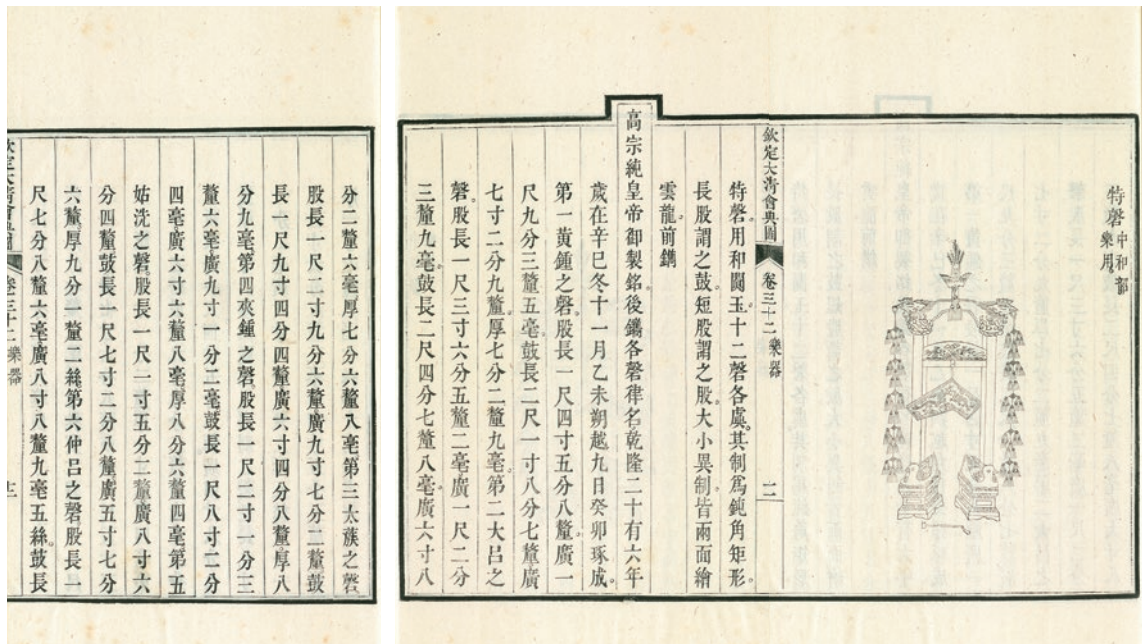 特磬中和韶樂用
欽定大清會典圖 卷三十二 樂器 二
特磬。用和闐玉。十二磬各虡。其制爲鈍角矩形。
長股謂之鼓。短股謂之股。大小異制。皆兩面繪
雲龍。前鐫
高宗純皇帝御製銘。後鐫各磬律名。乾隆二十有六年
歲在辛巳冬十一月乙未朔越九日癸卯琢成。
第一黃鍾之磬。股長一尺四寸五分八釐。廣一
尺九分三釐五毫。鼓長二尺一寸八分七釐。廣
七寸二分九釐。厚七分二釐九毫。第二大呂之
磬。股長一尺三寸六分五釐二毫。廣一尺二分
三釐九毫。鼓長二尺四分七釐八毫。廣六寸八
分二釐六毫。厚七分六釐八毫。第三太蔟之磬。
股長一尺二寸九分六釐。廣九寸七分二釐。鼓
長一尺九寸四分四釐。廣六寸四分八釐。厚八
分九毫。第四夾鍾之磬。股長一尺二寸一分三
釐六毫。廣九寸一分二毫。鼓長一尺八寸二分
四毫。廣六寸六釐八毫。厚八分六釐四毫。第五
姑洗之磬。股長一尺一寸五分二釐。廣八寸六
分四釐。鼓長一尺七寸二分八釐。廣五寸七分
六釐。厚九分一釐二絲。第六仲呂之磬。股長一
尺七分八釐六毫。廣八寸八釐九毫五絲。鼓長
欽定大清會典圖 卷三十二 樂器